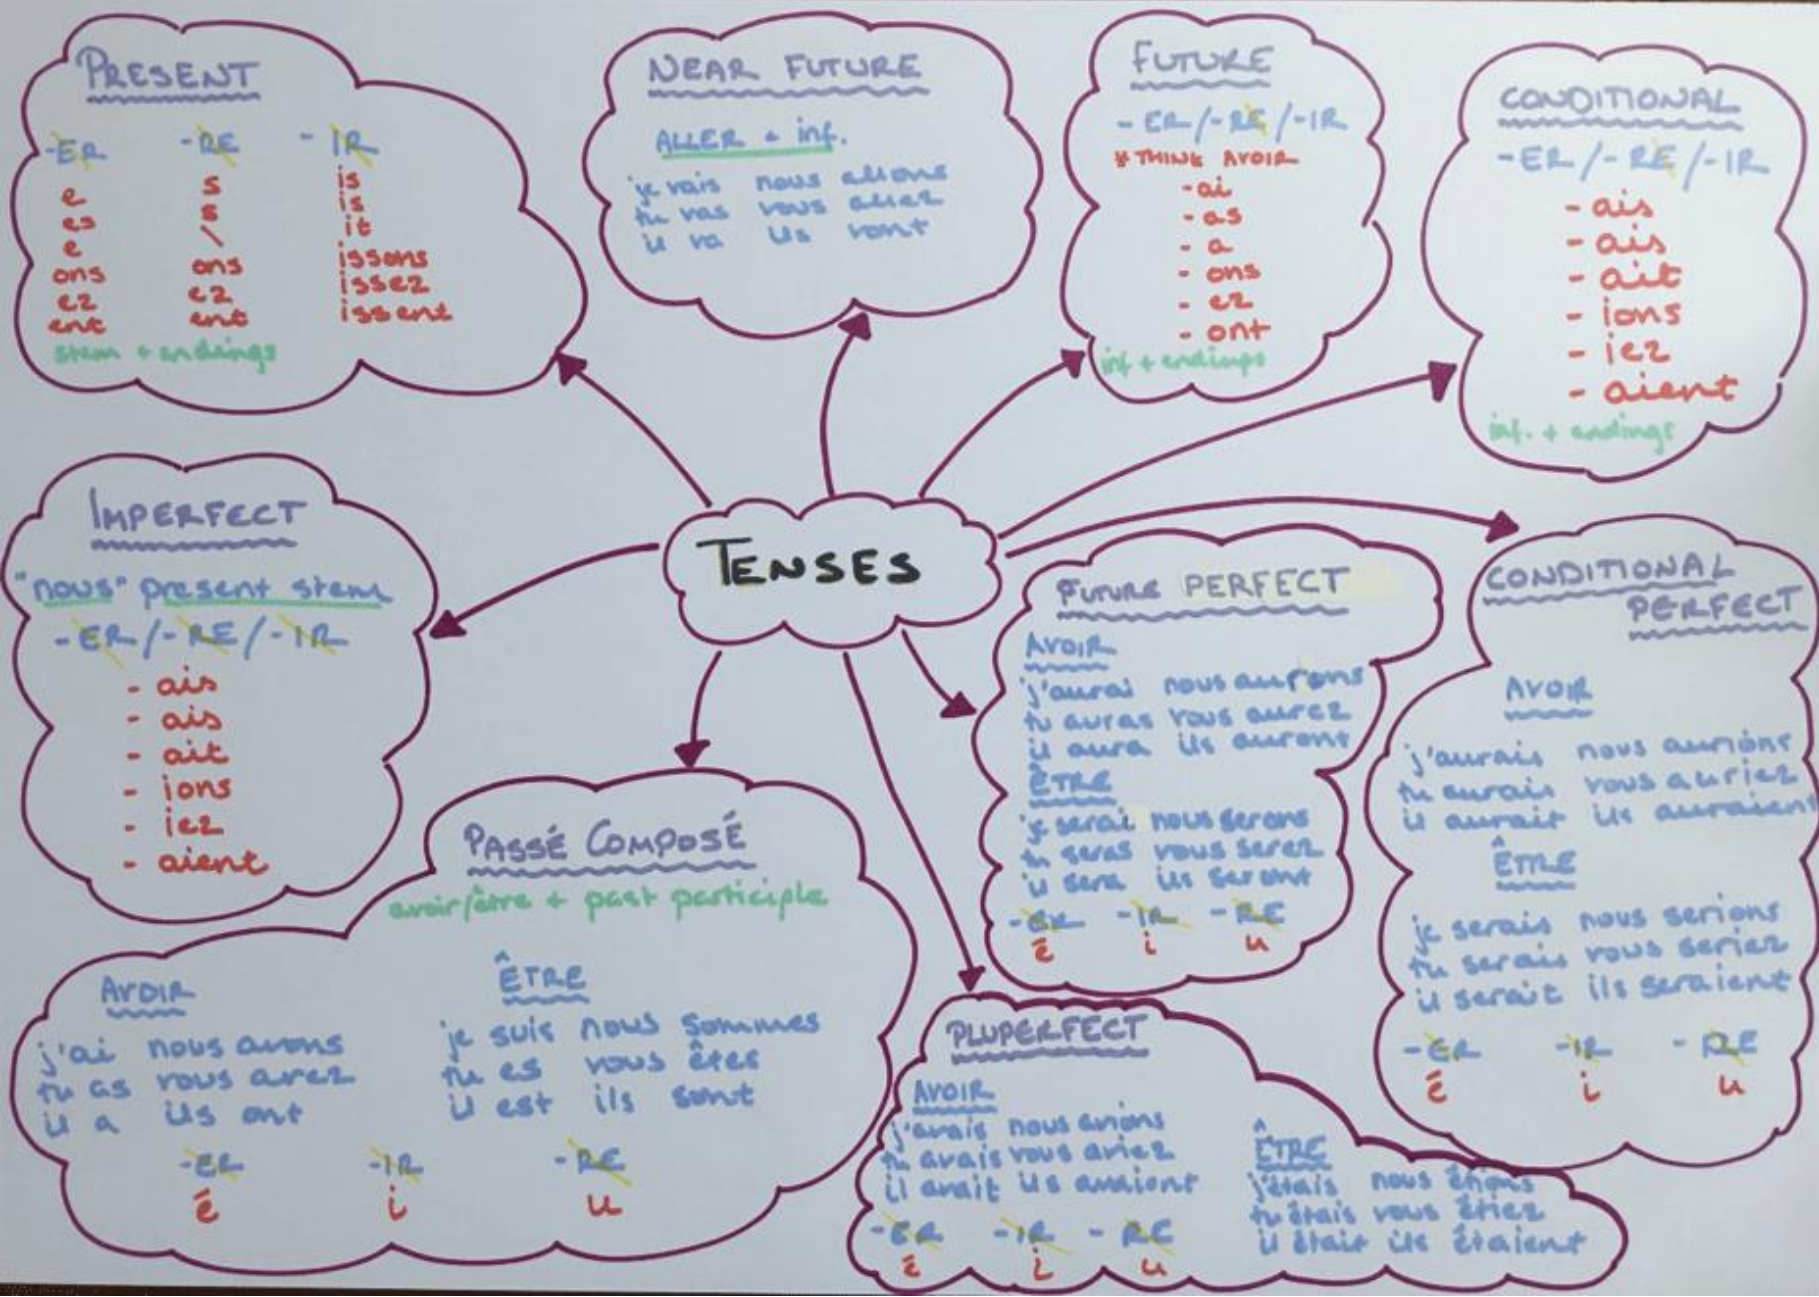 TENSES
PRESENT
-ER -RE - IR
e s is
es s is
e \ it
ons ons issons
ez ez issez
ent ent issent
stem + endings
NEAR FUTURE
ALLER + inf.
je vais nous allons
tu vas vous allez
il va ils vont
FUTURE
- ER/-RE/-IR
* THINK AVOIR
-ai
- as
- a
- ons
- ez
- ont
inf + endings
CONDITIONAL
-ER/-RE/-IR
- ais
- ais
- ait
- ions
- iez
- aient
inf. + endings
IMPERFECT
"nous" present stem
-ER/-RE/-IR
- ais
- ais
- ait
- ions
- iez
- aient
PASSÉ COMPOSÉ
avoir/être + past participle
AVOIR
j'ai nous avons
tu as vous avez
il a ils ont
ÊTRE
je suis nous sommes
tu es vous êtes
il est ils sont
-ER -IR -RE
é i u
FUTURE PERFECT
AVOIR
j'aurai nous aurons
tu auras vous aurez
il aura ils auront
ÊTRE
je serai nous serons
tu seras vous serez
il sera ils seront
-ER -IR -RE
é i u
CONDITIONAL
PERFECT
AVOIR
j'aurais nous aurions
tu aurais vous auriez
il aurait ils auraient
ÊTRE
je serais nous serions
tu serais vous seriez
il serait ils seraient
-ER -IR - RE
é i u
PLUPERFECT
AVOIR
j'avais nous avions
tu avais vous aviez
il avait ils avaient
ÊTRE
j'étais nous étions
tu étais vous étiez
il était ils étaient
-ER -IR - RE
é i u